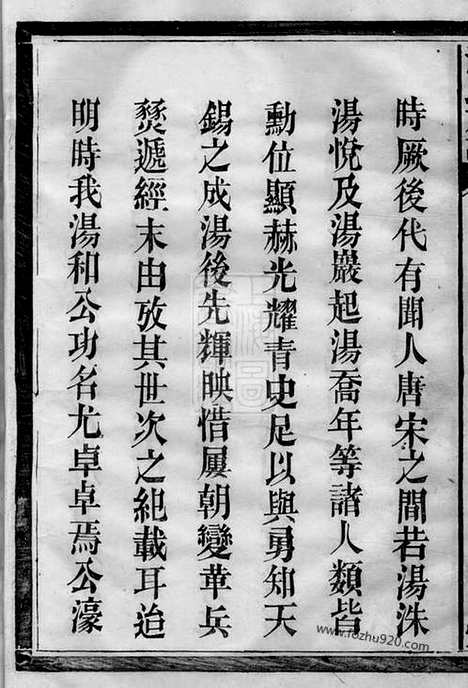 時厥後代有聞人唐宋之間若湯洙
湯悅及湯巖起湯喬年等諸人類皆
勳位顯赫光耀青史足以與勇知天
錫之成湯後先輝映惜屢朝變革兵
燹遞經末由攷其世次之紀載耳迨
明時我湯和公功名尤卓卓焉公濠
www.fozhu920.com